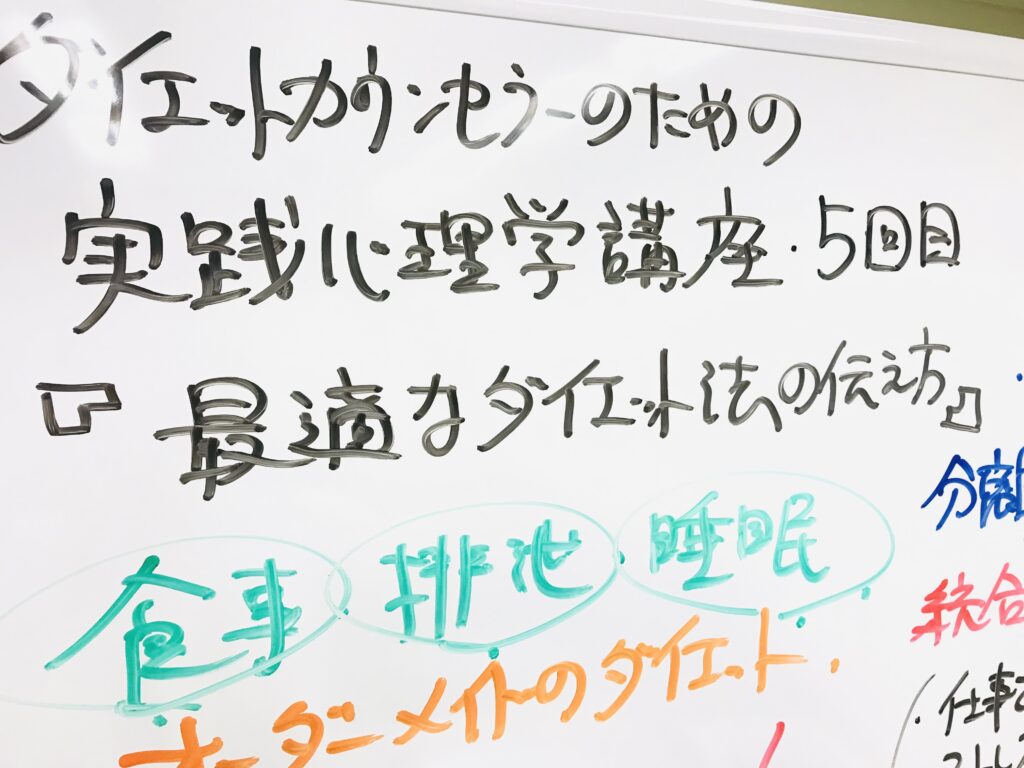 ダイエットカウンセラーのための
実践心理学講座・5回目
『最適なダイエット法の伝え方』
食事 排池 睡眠
オーダーメイドのダイエット
分離
統合
・仕事